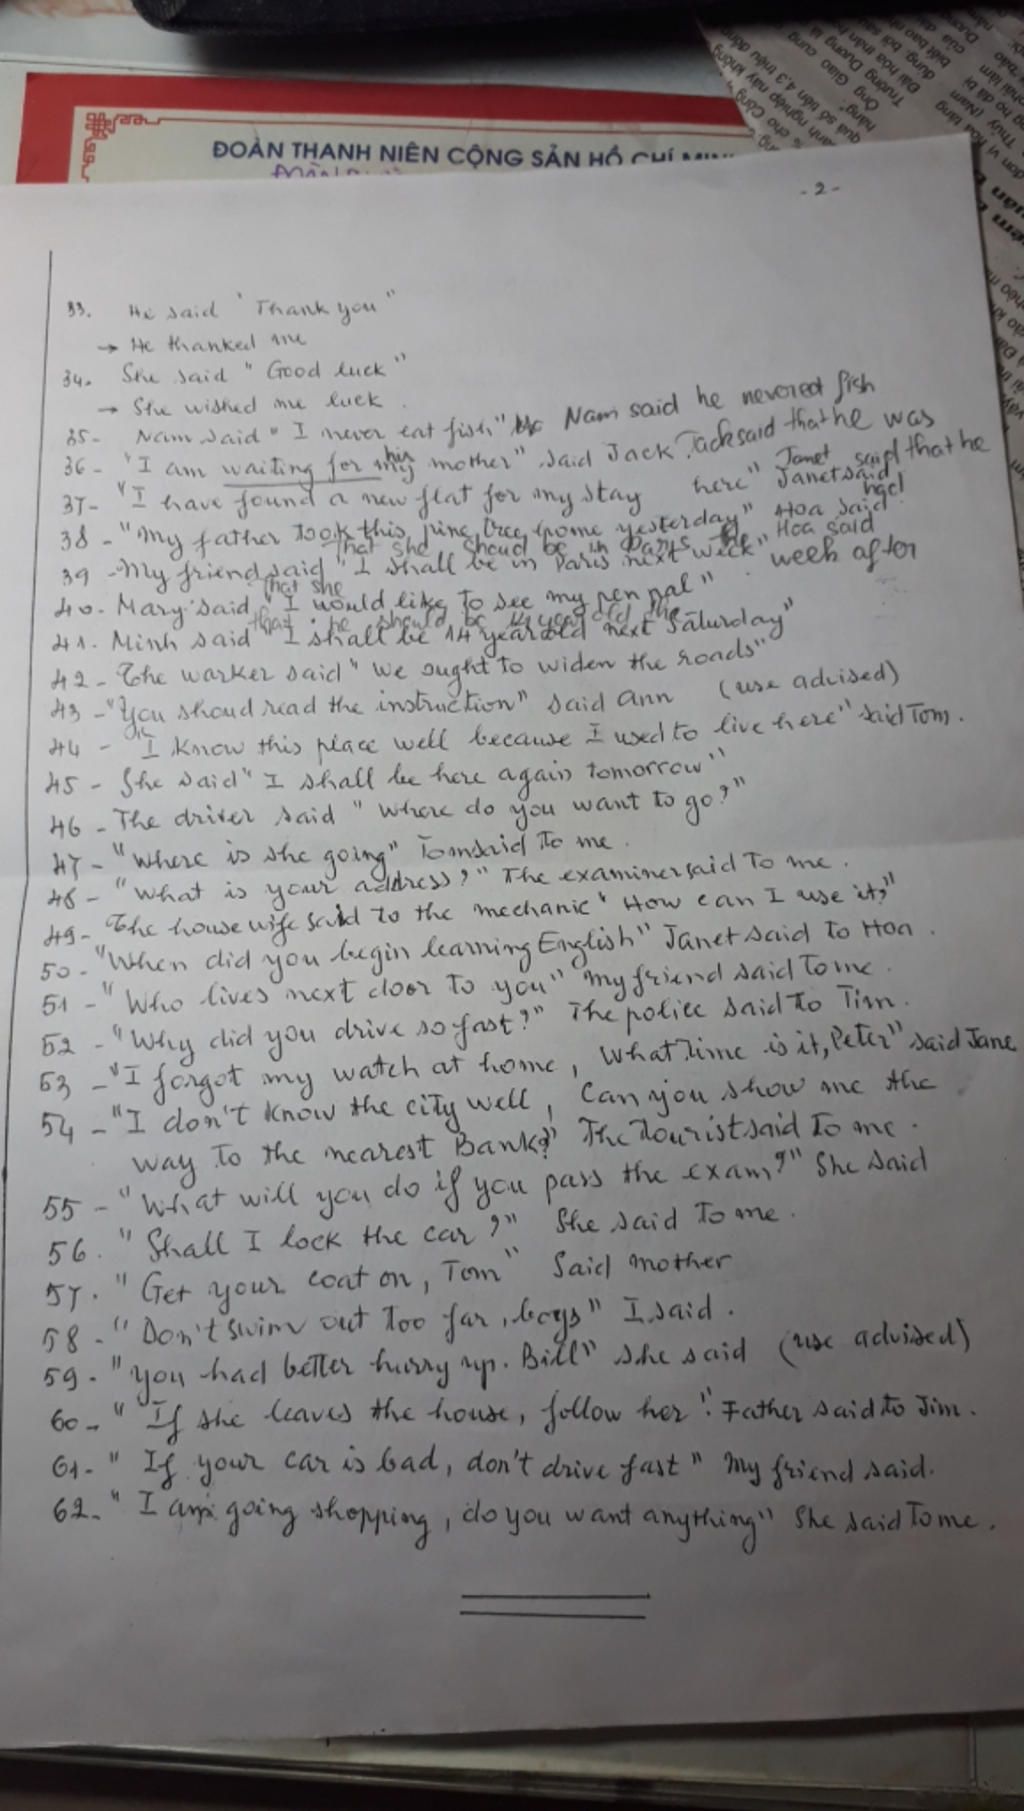 ĐOÀN THANH NIÊN CỘNG SẢN HỒ CHÍ MINH
- 2 -
33. He said "Thank you"
→ He thanked me
34. She said "Good luck"
→ She wished me luck.
35- Nam said "I never eat fish" Nam said he nevered fish
36- "I am waiting for my his mother" said Jack. Jack said that he was
37- "I have found a new flat for my stay here" Janet said, Janet said that he had
38- "My father took this pine tree home yesterday" Hoa said. Hoa said
39- My friend said "I shall be in Paris next week" week after
that she shoud be in Paris the
40- Mary said "I would like to see my pen pal"
that she
41. Minh said "I shall be 14 year old next Saturday"
that he should be 14 year old the
42- The warker said "We ought to widen the roads"
43- "You shoud read the instruction" said Ann (use advised)
44- "I know this place well because I used to live here" said Tom.
45- She said "I shall be here again tomorrow"
46- The driver said "Where do you want to go?"
47- "Where is she going" Tom said to me.
48- "What is your address?" The examiner said to me.
49- The house wife said to the mechanic "How can I use it?"
50- "When did you begin learning English" Janet said to Hoa.
51- "Who lives next door to you" my friend said to me.
52- "Why did you drive so fast?" The police said to Tim.
53- "I forgot my watch at home, what time is it, Peter" said Jane
54- "I don't know the city well, Can you show me the
way to the nearest Bank?" The tourist said to me.
55- "What will you do if you pass the exam?" She said
56. "Shall I lock the car?" She said to me.
57. "Get your coat on, Tom" Said mother
58- "Don't swim out too far, boys" I said.
59- "you had better hurry up. Bill" she said (use advised)
60- "If she leaves the house, follow her". Father said to Jim.
61- "If your car is bad, don't drive fast" My friend said.
62- "I am going shopping, do you want anything" She said to me.